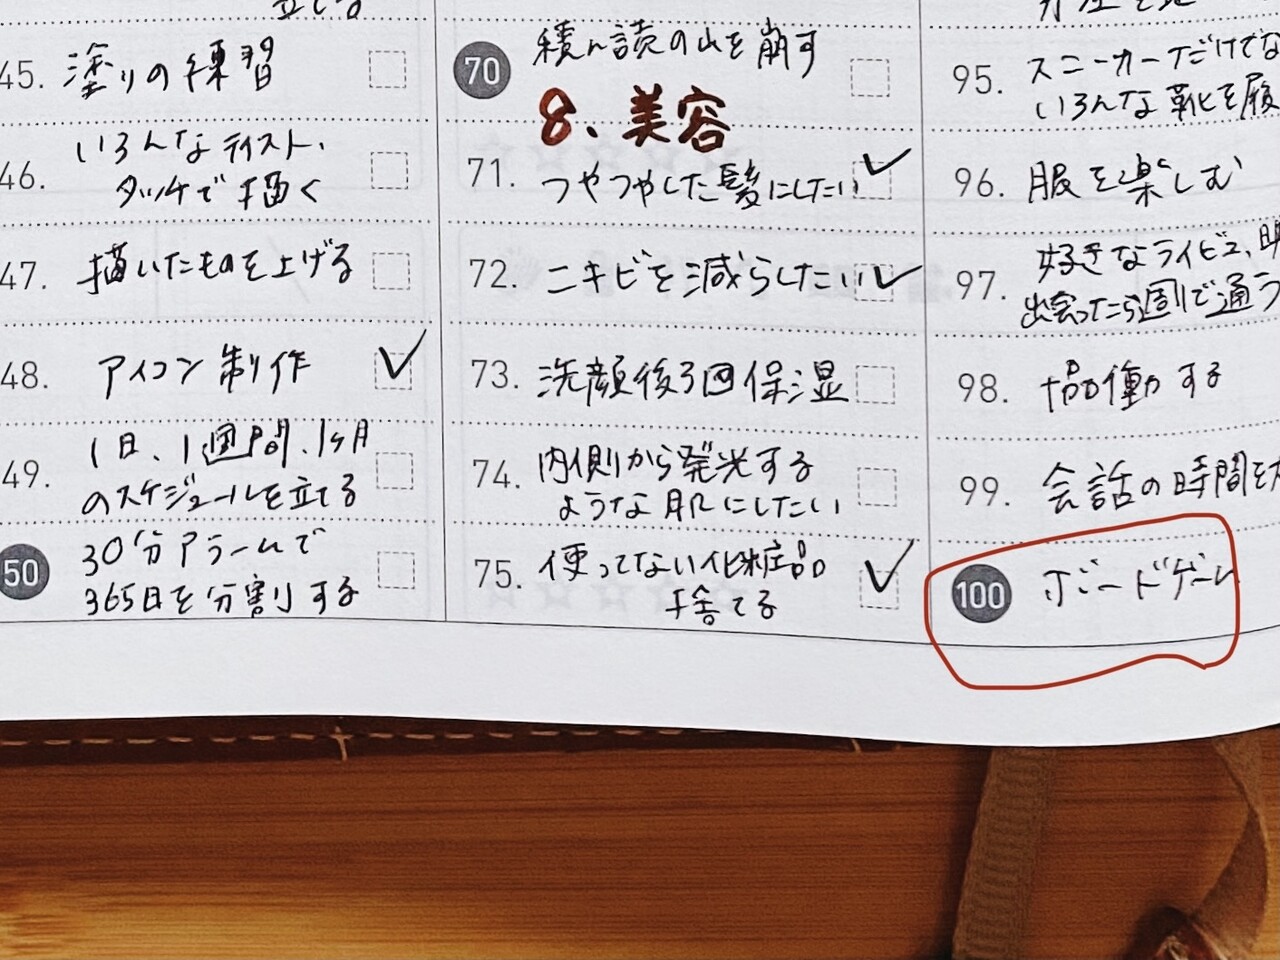 45. 塗りの練習
46. いろんなテイスト、
タッチで描く
47. 描いたものを上げる
48. アイコン制作
49. 1日、1週間、1ヶ月
のスケジュールを立てる
50 30分アラームで
365日を分割する
70 積ん読の山を崩す
8. 美容
71. つやつやした髪にしたい
72. ニキビを減らしたい
73. 洗顔後3回保湿
74. 内側から発光する
ような肌にしたい
75. 使ってない化粧品
捨てる
95. スニーカーだけでな
いろんな靴を履
96. 服を楽しむ
97. 好きなライビュ、
出会ったら週1で通う
98. 協働する
99. 会話の時間を
100 ボードゲーム